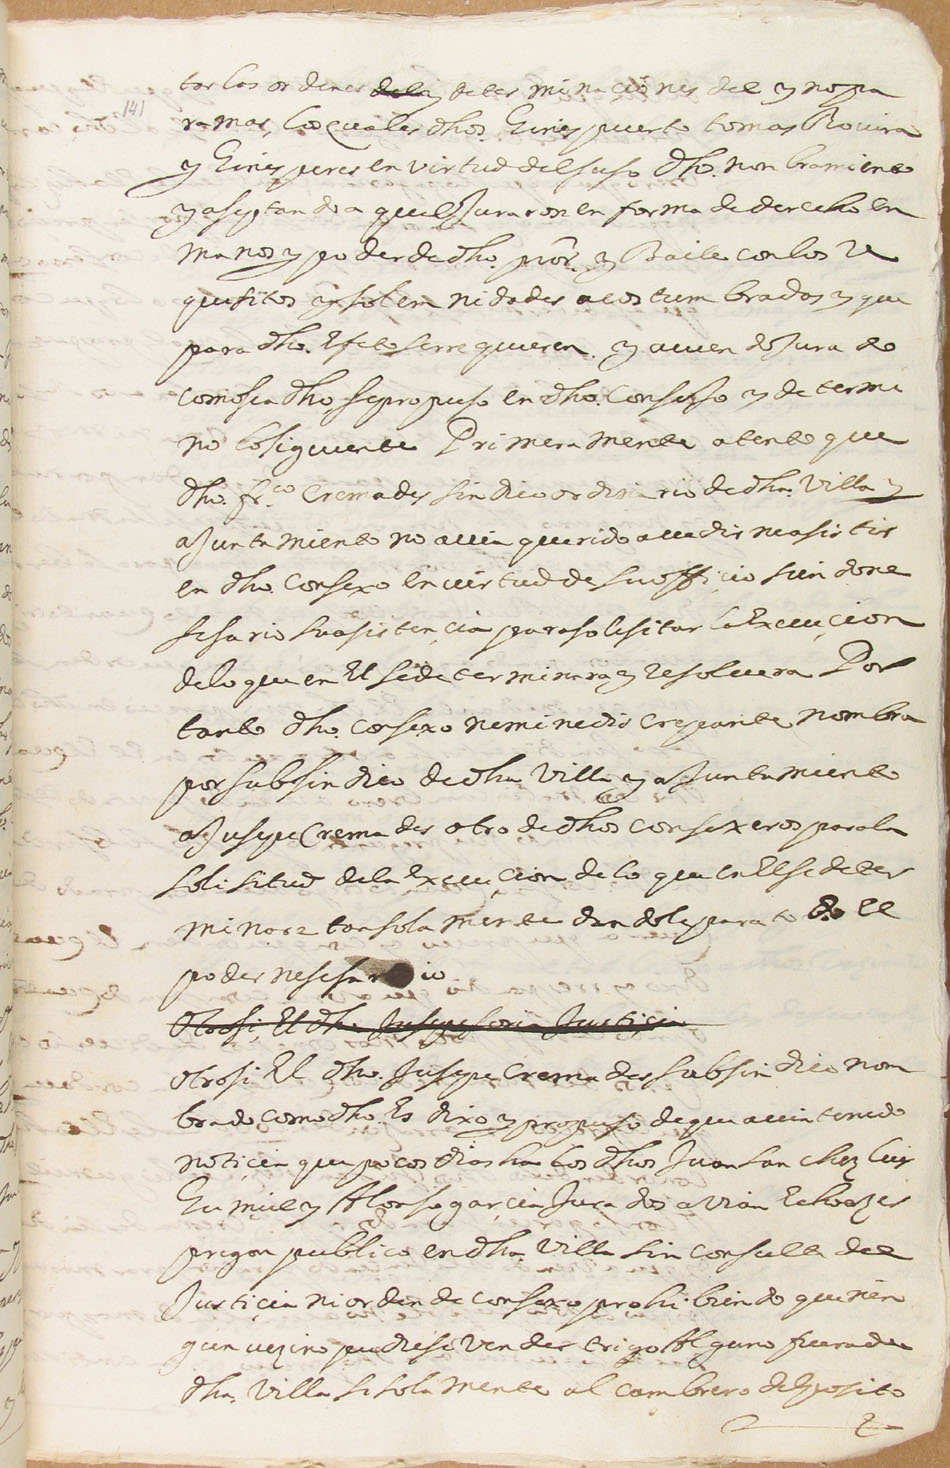 141
tar las ordenes de la determinaciones del y no pa
ra mas, los quales dhos. Gines puerto tomas Rovira
y Gines peres en virtud del suso dho. nonbramiento
y aseptando aquel Juraron en forma de derecho en
manos y poder de dho. pror. y Baile con los re
quisitos y solemnidades acostumbradas y que
para dho. Efeto se rrequieren. y aviendo Jurado
como sea dho se propuso en dho. Consexo y determi
no lo siguiente Primeramente atento que
dho. frco. Cremades sindico ordinario de dha. Villa y
aJuntamiento no avia querido acudir ni asistir
en dho. Consexo En virtud de su officio siendo ne
sesario su asistençia para solisitar la Execuçion
de lo que en El se determinara y resolvera Por
tanto dho. consexo nemine discrepante nombra
por subsindico de dha Villa y aJuntamiento
a Jusepe Cremades otro de dhos consexeros para la
solisitud de la Execuçion de lo que en El se deter
minare tan sola mente dandole para todo El
poder nesesario
Otrosi, El dho. Jusepe Soria Justiçia
Otrosi El dho. Jusepe Cremades subsindico nom
brado como dho. Es dixo y propuso de que avia tenido
notiçia que pocos dias ha los dhos Juan Sanchez luis
Gumiel y Alonso garcia Jurados avian Echo azer
pregon publico en dha. Villa sin consulta del
Justiçia ni orden de consexo prohibiendo que nin
gun vezino pudiese vender trigo Alguno fuera de
dha. Villa si sola mente al cambrero del posito